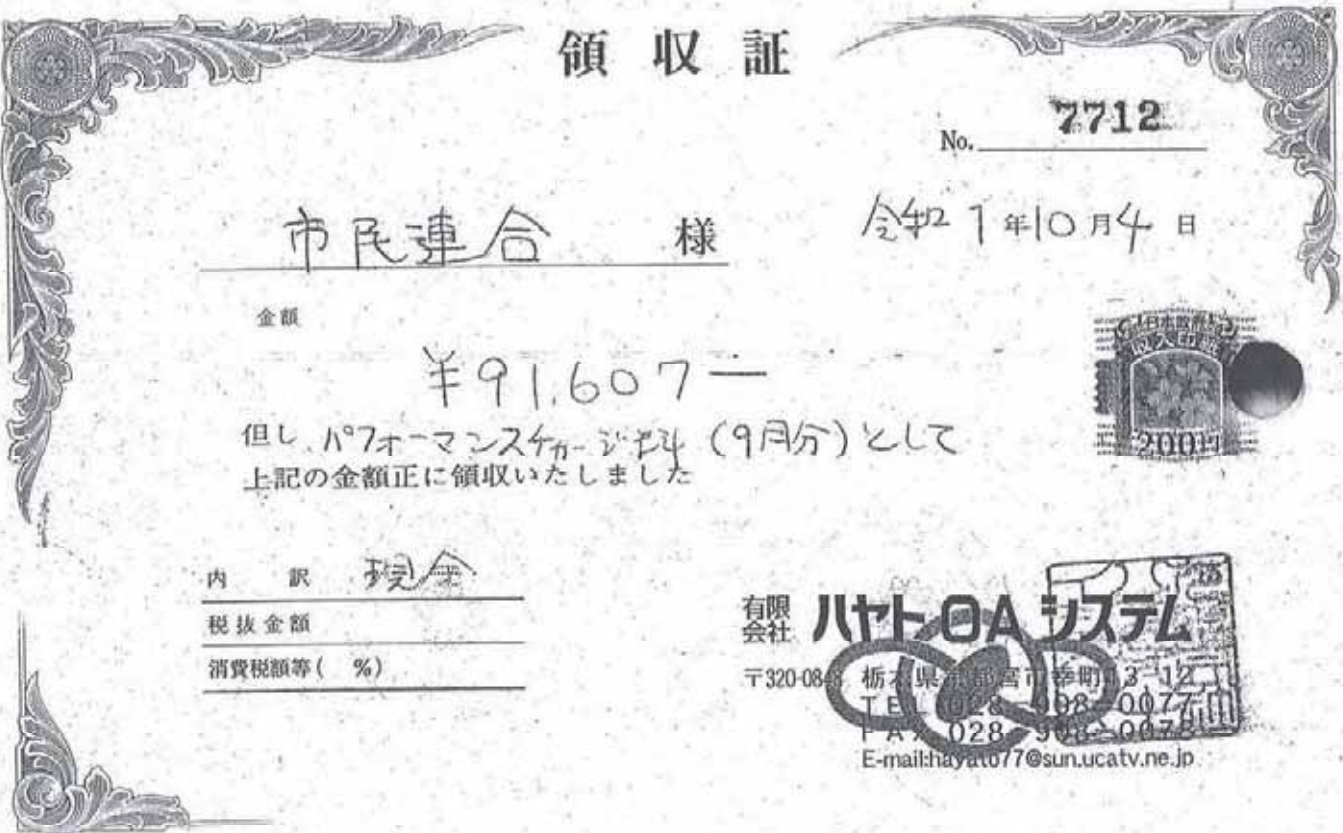 領収証
No. 7712
市民連合 様
令和1年10月4日
金額
¥91,607－
但し、パフォーマンスチャージ料（9月分）として
上記の金額正に領収いたしました
日本政府
収入印紙
200円
内訳 現金
税抜金額
消費税額等( %)
有限会社 ハヤトOAシステム
〒320-0848 栃木県宇都宮市幸町13-12
TEL 028-908-0077
FAX 028-908-0078
E-mail:hayato77@sun.ucatv.ne.jp